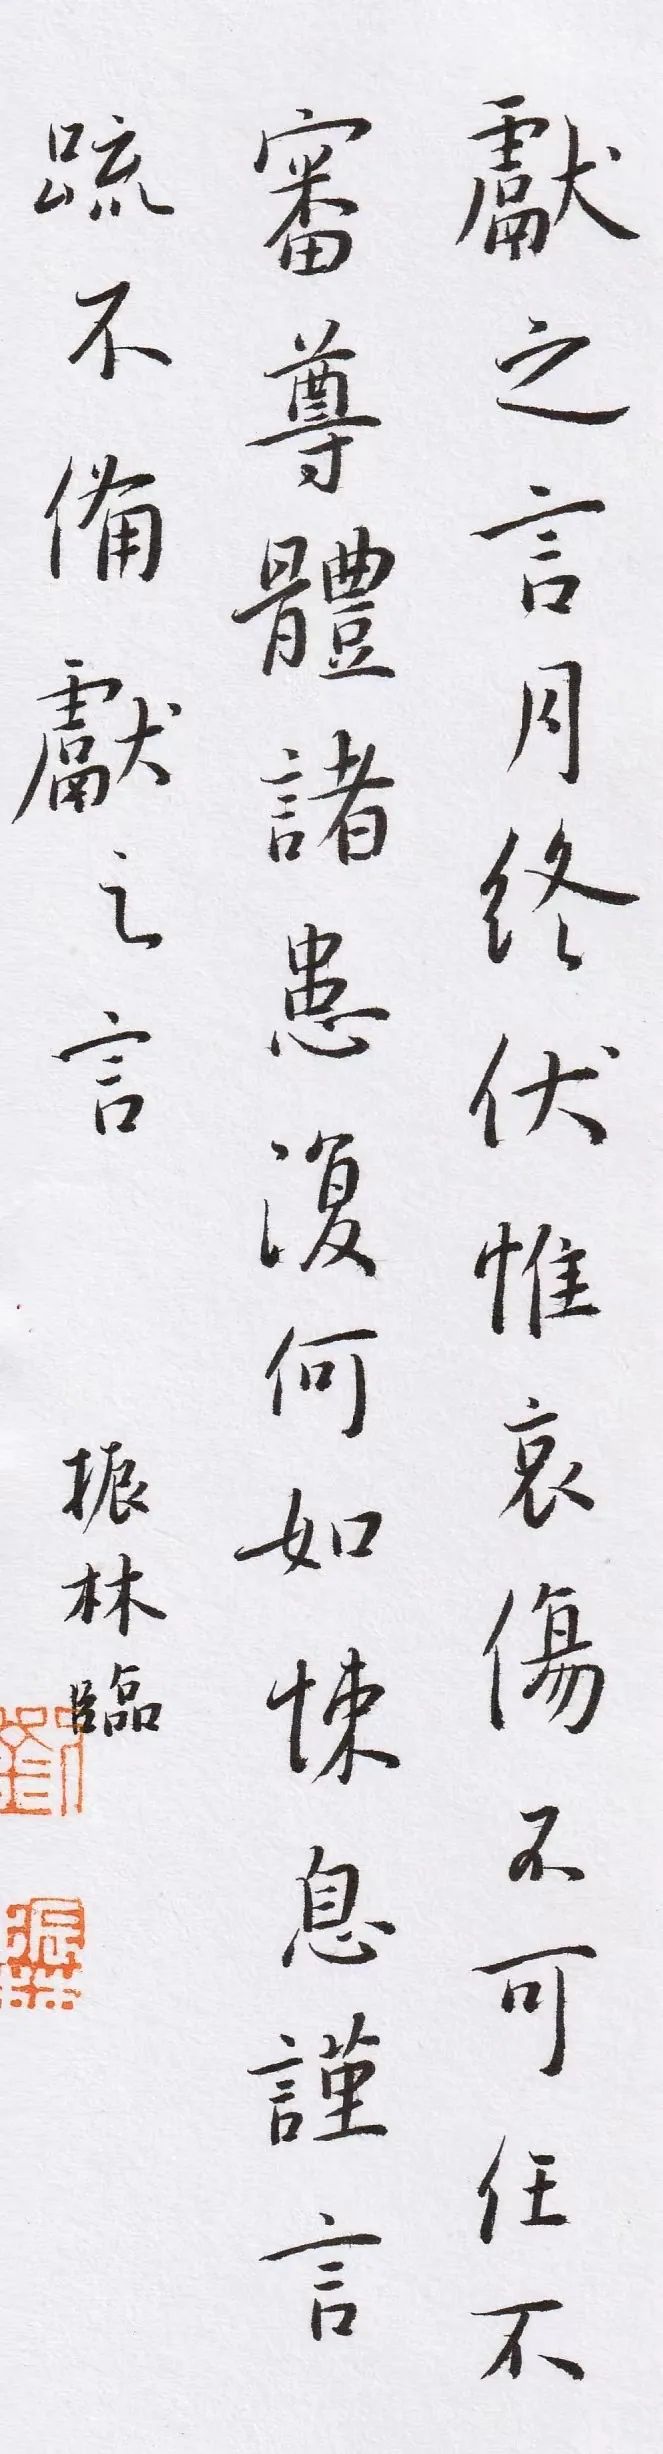 獻之言月終伏惟哀傷不可任不
審尊體諸患復何如悚息謹言
疏不備獻之言
振林臨
劉
振林